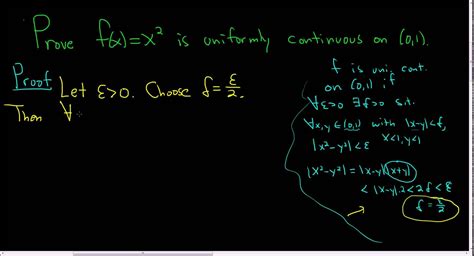 Prove f(x)=x² is uniformly continuous on (0,1).
Proof Let ε>0. Choose δ=ε/2.
Then ∀
f is uni. cont.
on (0,1) if
∀ε>0 ∃δ>0 s.t.
∀x,y∈(0,1) with |x-y|<δ,
|x²-y²|<ε x<1, y<1
|x²-y²|=|x-y||x+y|
<|x-y|·2<2δ<ε
δ=ε/2